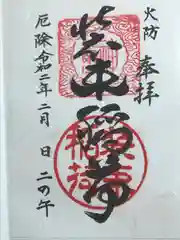 火防
奉拝
装束稲荷
厄除令和二年二月 日 二の午